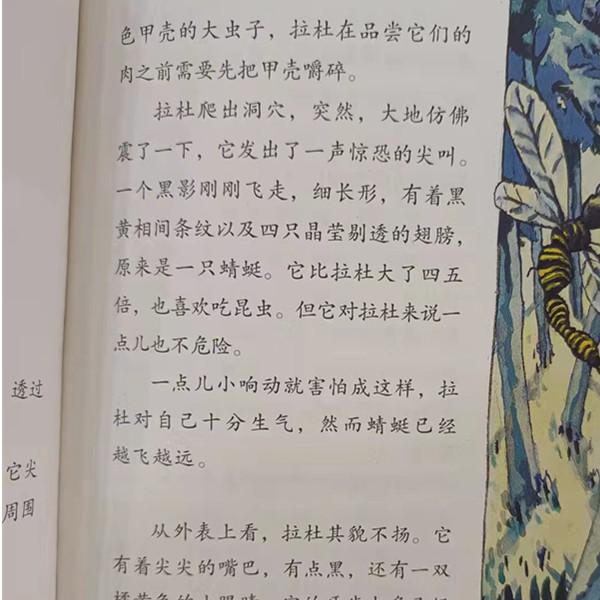 透过
它尖
周围
色甲壳的大虫子，拉杜在品尝它们的
肉之前需要先把甲壳嚼碎。
拉杜爬出洞穴，突然，大地仿佛
震了一下，它发出了一声惊恐的尖叫。
一个黑影刚刚飞走，细长形，有着黑
黄相间条纹以及四只晶莹剔透的翅膀，
原来是一只蜻蜓。它比拉杜大了四五
倍，也喜欢吃昆虫。但它对拉杜来说一
点儿也不危险。
一点儿小响动就害怕成这样，拉
杜对自己十分生气，然而蜻蜓已经
越飞越远。
从外表上看，拉杜其貌不扬。它
有着尖尖的嘴巴，有点黑，还有一双
橘黄色的大眼睛，它的牙齿